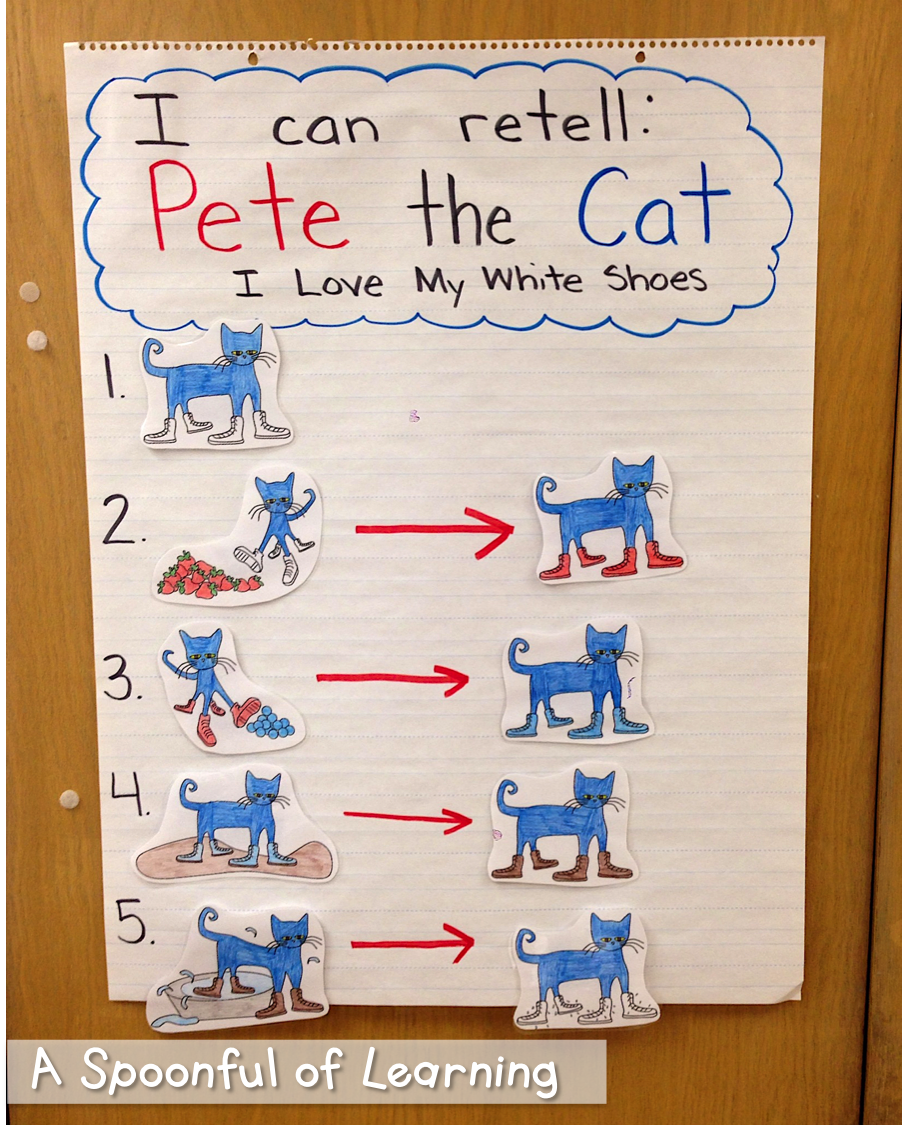 I can retell:
Pete the Cat
I Love My White Shoes
1.
2.
3.
4.
5.
A Spoonful of Learning